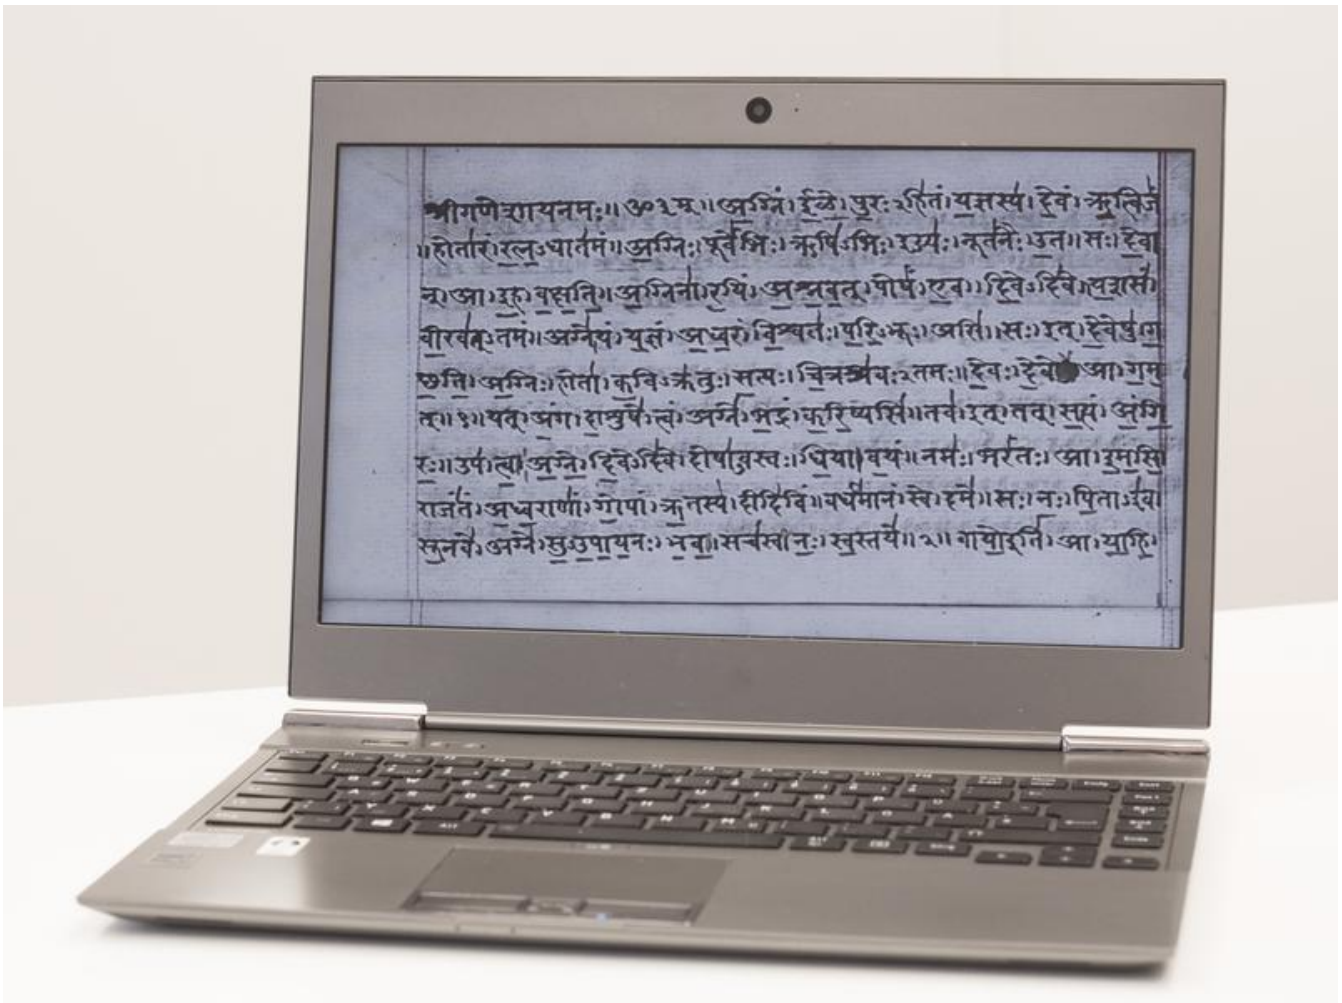 श्रीगणेशायनमः॥ॐ३म्॥अ॒ग्निं।ई॒ळे॒।पु॒रः२हि॑तं।य॒ज्ञस्य॑।दे॒वं।ऋ॒त्विजं॑
॥होता॑रं।र॒त्न॒ऽधात॑मं॥अ॒ग्निः।पूर्वे॑भिः।ऋषि॑ऽभिः।ईड्यः॑।नूत॑नैः।उ॒त॥सः।दे॒वा
न्।आ।इ॒ह।व॒क्ष॒ति॒॥अ॒ग्निना॑।र॒यिं।अ॒श्न॒व॒त्।पोषं॑।ए॒व।दि॒वेऽदि॑वे॥य॒शसं॑
वी॒रव॑त्ऽतमं॥अग्ने॑।यं।य॒ज्ञं।अ॒ध्व॒रं।वि॒श्वतः॑।प॒रि॒ऽभूः।असि॑॥सः।इत्।दे॒वेषु॑।ग॒
छ॒ति॒।अ॒ग्निः।होता॑।क॒विऽक्र॑तुः।स॒त्यः।चि॒त्रश्र॑वः२तमः॥दे॒वः।दे॒वे आ।ग॒म॒
त्॥१॥यत्।अं॒ग।दा॒शुषे॑।त्वं।अग्ने॑।भ॒द्रं।क॒रि॒ष्यसि॑॥तव॑।इत्।तत्।स॒त्यं।अं॒गि॒
रः॒॥उप॑।त्वा॒।अ॒ग्ने॒।दि॒वेऽदि॑वे।दोषा॑ऽवस्तः।धि॒या।व॒यं॥नमः॑।भर॑तः।आ।इ॒म॒सि॒
राजं॑तं।अ॒ध्व॒राणां॑।गो॒पां।ऋ॒तस्य॑।दीदि॑विं॥वर्ध॑मानं।स्वे।दमे॑॥सः।नः॒।पि॒ताऽइ॑व।
सू॒नवे॑।अग्ने॑।सु॒ऽउ॒पा॒य॒नः।भ॒व॒॥सच॑स्व।नः॒।स्व॒स्तये॑॥२॥वायो॒इति॑।आ।या॒हि॒।